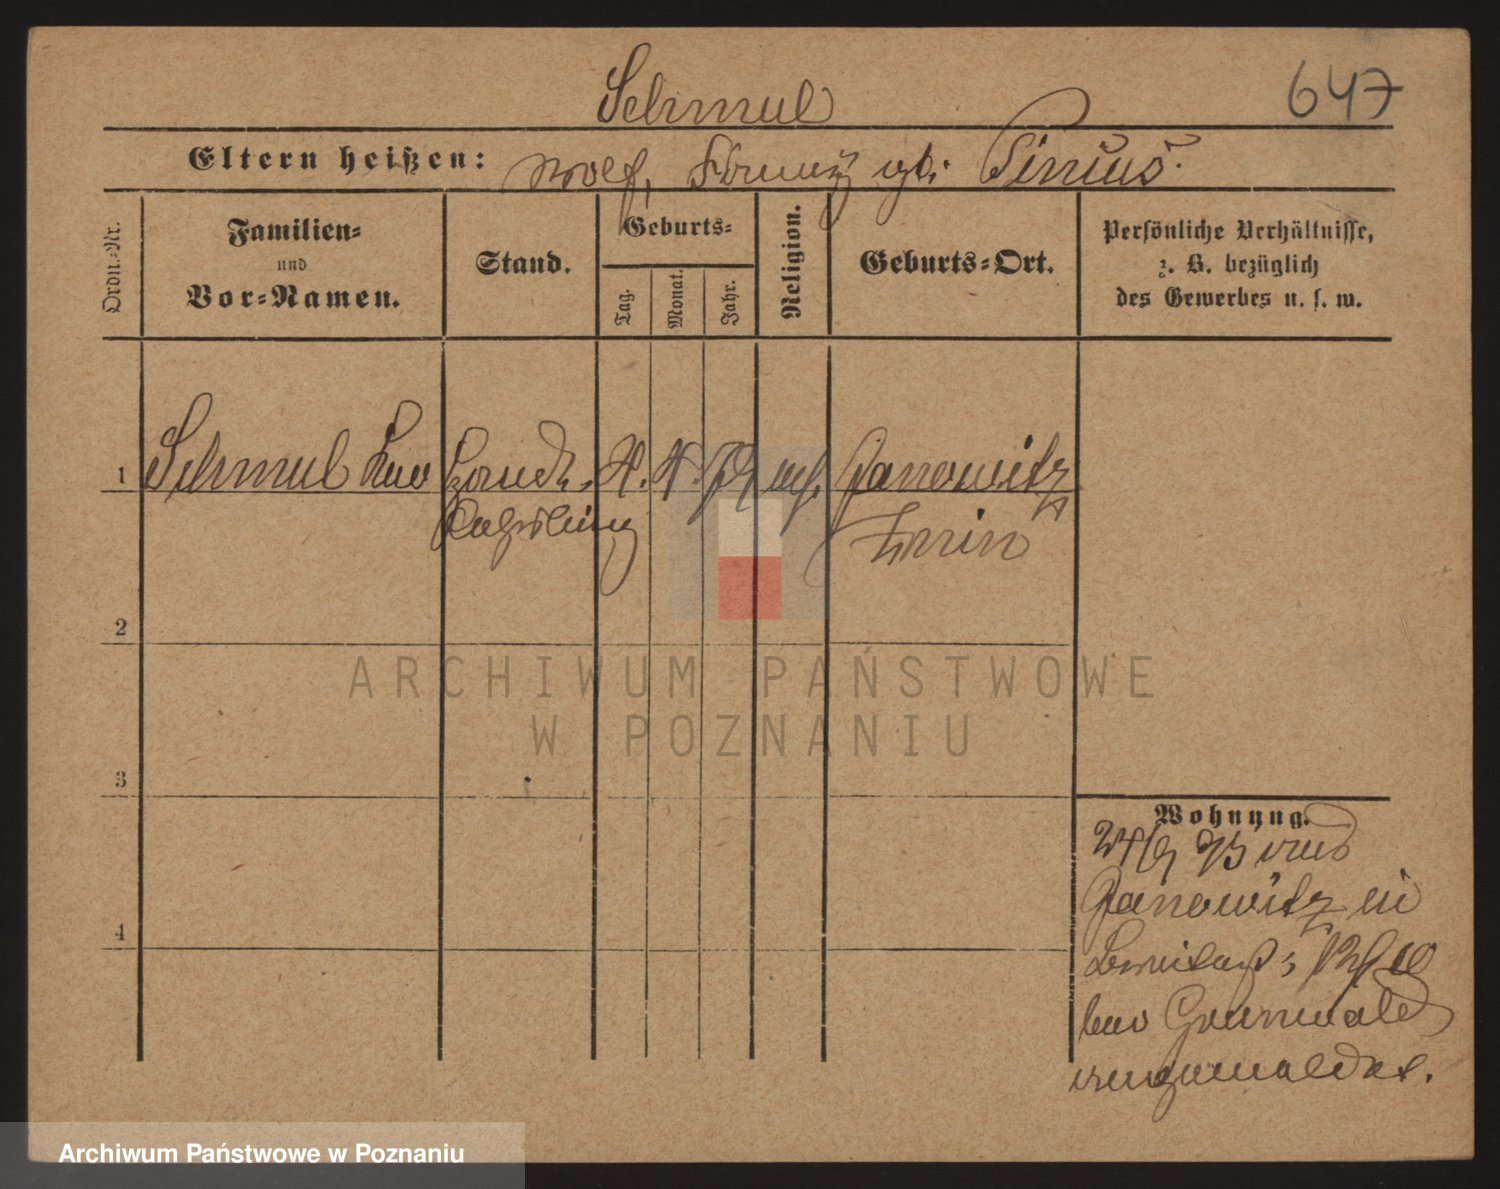 Schmul
647
Eltern heißen: Wolf, gb. Pincus.
Ordn.-Nr.
Familien-
und
Vor-Namen.
Stand.
Geburts-
Tag.
Monat.
Jahr.
Religion.
Geburts-Ort.
Persönliche Verhältnisse,
z. B. bezüglich
des Gewerbes u. s. w.
1
Schmul Leo
Handl.
Lehrling
Janowitz
Znin
2
3
4
Wohnung.
Janowitz in
Breitestr.
bei Grunwald
angemeldet.
ARCHIWUM PAŃSTWOWE
W POZNANIU
Archiwum Państwowe w Poznaniu